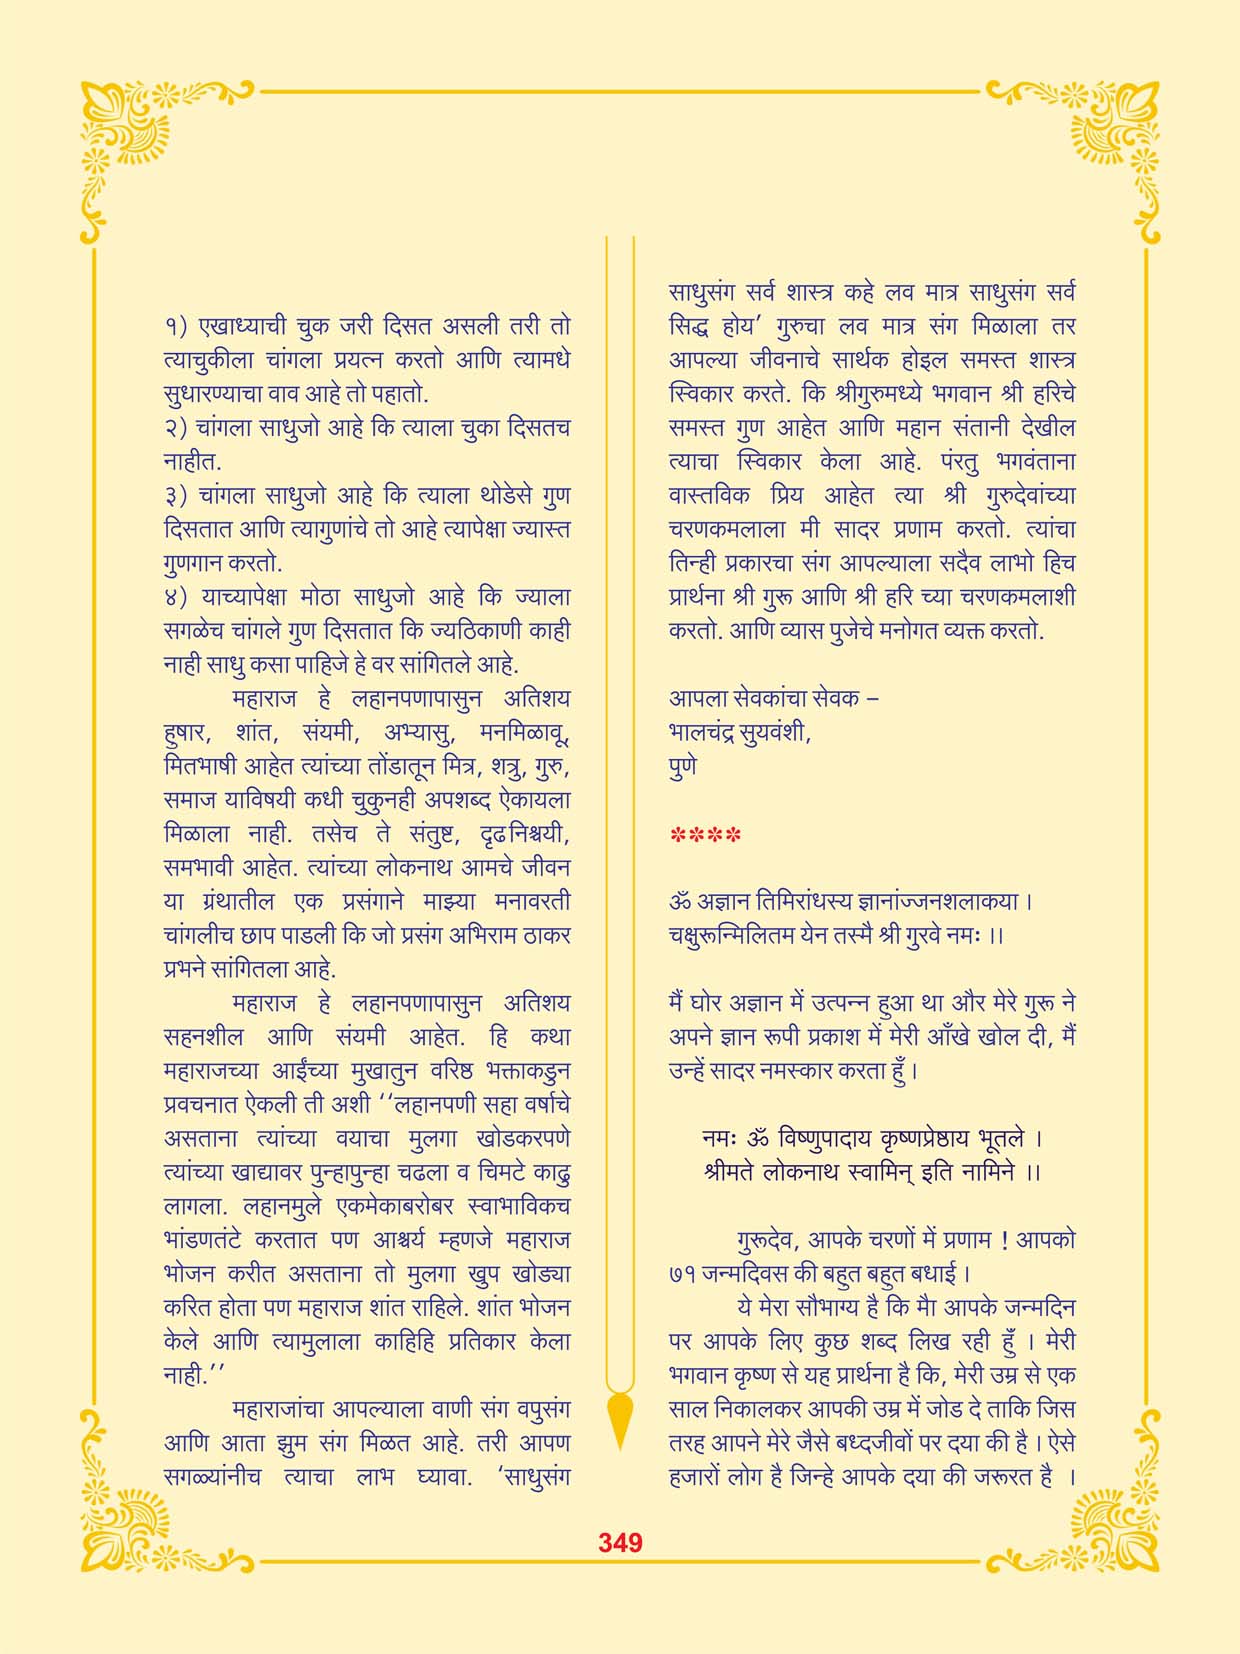 १) एखाध्याची चुक जरी दिसत असली तरी तो
त्याचुकीला चांगला प्रयत्न करतो आणि त्यामधे
सुधारण्याचा वाव आहे तो पहातो.
२) चांगला साधुजो आहे कि त्याला चुका दिसतच
नाहीत.
३) चांगला साधुजो आहे कि त्याला थोडेसे गुण
दिसतात आणि त्यागुणांचे तो आहे त्यापेक्षा ज्यास्त
गुणगान करतो.
४) याच्यापेक्षा मोठा साधुजो आहे कि ज्याला
सगळेच चांगले गुण दिसतात कि ज्यठिकाणी काही
नाही साधु कसा पाहिजे हे वर सांगितले आहे.
महाराज हे लहानपणापासुन अतिशय
हुषार, शांत, संयमी, अभ्यासु, मनमिळावू,
मितभाषी आहेत त्यांच्या तोंडातून मित्र, शत्रु, गुरु,
समाज याविषयी कधी चुकुनही अपशब्द ऐकायला
मिळाला नाही. तसेच ते संतुष्ट, दृढनिश्चयी,
समभावी आहेत. त्यांच्या लोकनाथ आमचे जीवन
या ग्रंथातील एक प्रसंगाने माझ्या मनावरती
चांगलीच छाप पाडली कि जो प्रसंग अभिराम ठाकर
प्रभने सांगितला आहे.
महाराज हे लहानपणापासुन अतिशय
सहनशील आणि संयमी आहेत. हि कथा
महाराजच्या आईंच्या मुखातुन वरिष्ठ भक्ताकडुन
प्रवचनात ऐकली ती अशी ‘‘लहानपणी सहा वर्षाचे
असताना त्यांच्या वयाचा मुलगा खोडकरपणे
त्यांच्या खाद्यावर पुन्हापुन्हा चढला व चिमटे काढु
लागला. लहानमुले एकमेकाबरोबर स्वाभाविकच
भांडणतंटे करतात पण आश्चर्य म्हणजे महाराज
भोजन करीत असताना तो मुलगा खुप खोड्या
करित होता पण महाराज शांत राहिले. शांत भोजन
केले आणि त्यामुलाला काहिहि प्रतिकार केला
नाही.’’
महाराजांचा आपल्याला वाणी संग वपुसंग
आणि आता झुम संग मिळत आहे. तरी आपण
सगळ्यांनीच त्याचा लाभ घ्यावा. ‘साधुसंग
साधुसंग सर्व शास्त्र कहे लव मात्र साधुसंग सर्व
सिद्ध होय’ गुरुचा लव मात्र संग मिळाला तर
आपल्या जीवनाचे सार्थक होइल समस्त शास्त्र
स्विकार करते. कि श्रीगुरुमध्ये भगवान श्री हरिचे
समस्त गुण आहेत आणि महान संतानी देखील
त्याचा स्विकार केला आहे. पंरतु भगवंताना
वास्तविक प्रिय आहेत त्या श्री गुरुदेवांच्या
चरणकमलाला मी सादर प्रणाम करतो. त्यांचा
तिन्ही प्रकारचा संग आपल्याला सदैव लाभो हिच
प्रार्थना श्री गुरू आणि श्री हरि च्या चरणकमलाशी
करतो. आणि व्यास पुजेचे मनोगत व्यक्त करतो.
आपला सेवकांचा सेवक –
भालचंद्र सुयवंशी,
पुणे
****
ॐ अज्ञान तिमिरांधस्य ज्ञानांज्जनशलाकया ।
चक्षुरून्मिलितम येन तस्मै श्री गुरवे नमः ।।
मैं घोर अज्ञान में उत्पन्न हुआ था और मेरे गुरू ने
अपने ज्ञान रूपी प्रकाश में मेरी आँखे खोल दी, मैं
उन्हें सादर नमस्कार करता हूँ ।
नमः ॐ विष्णुपादाय कृष्णप्रेष्ठाय भूतले ।
श्रीमते लोकनाथ स्वामिन् इति नामिने ।।
गुरूदेव, आपके चरणों में प्रणाम ! आपको
७१ जन्मदिवस की बहुत बहुत बधाई ।
ये मेरा सौभाग्य है कि मैा आपके जन्मदिन
पर आपके लिए कुछ शब्द लिख रही हुँ । मेरी
भगवान कृष्ण से यह प्रार्थना है कि, मेरी उम्र से एक
साल निकालकर आपकी उम्र में जोड दे ताकि जिस
तरह आपने मेरे जैसे बध्दजीवों पर दया की है । ऐसे
हजारों लोग है जिन्हे आपके दया की जरूरत है ।
349